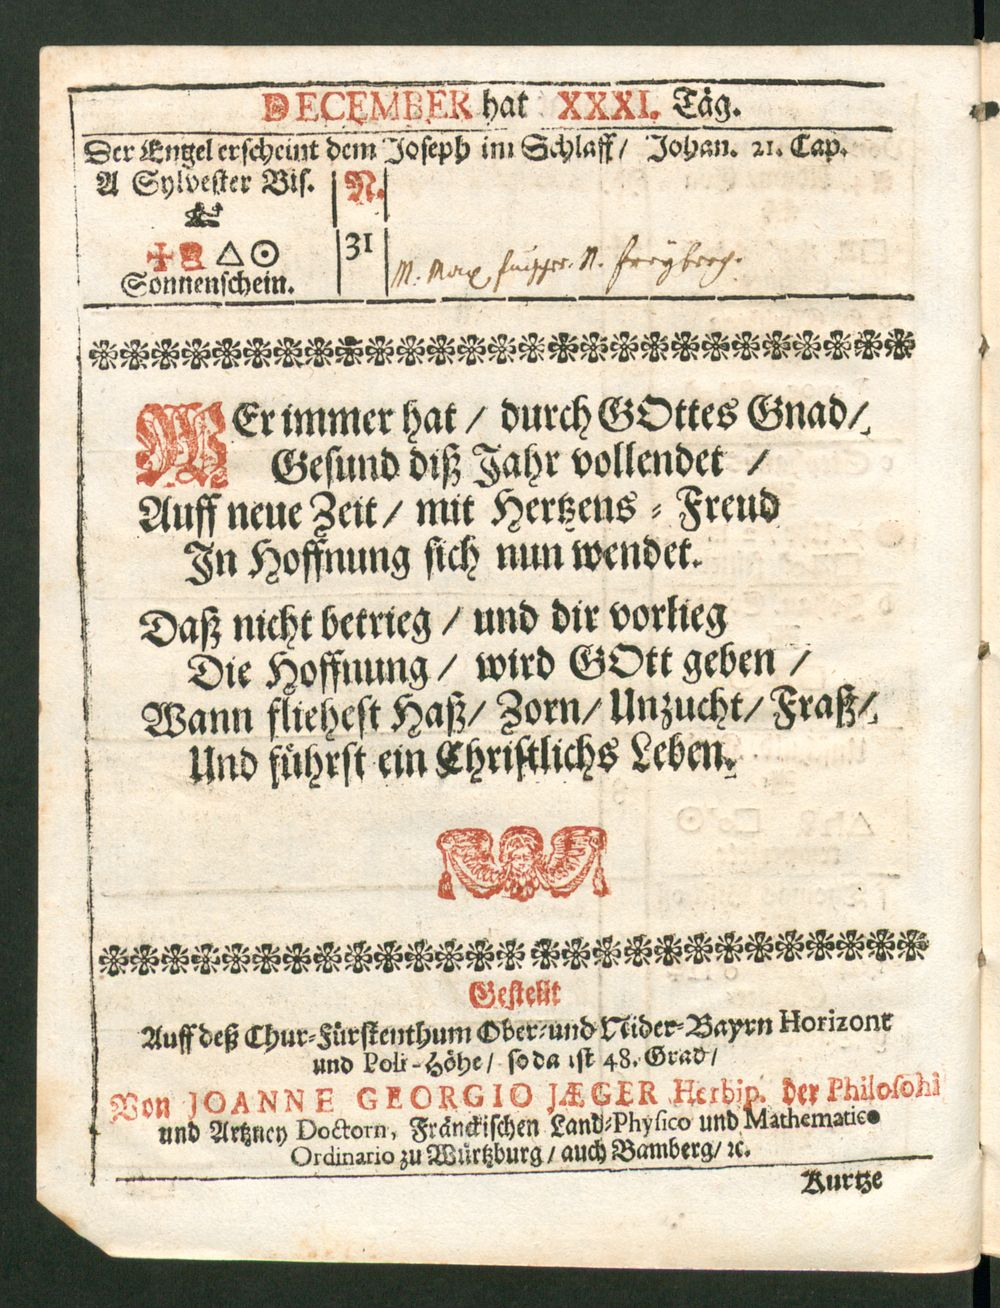 DECEMBER hat XXXI. Täg.
Der Engel erscheint dem Joseph im Schlaff / Johan. 21. Cap.
A Sylvester Bis. N.
31
M. Max N. freyberg.
△☉
Sonnenschein.
WEr immer hat / durch GOttes Gnad /
Gesund diß Jahr vollendet /
Auff neue Zeit / mit Hertzens = Freud
In Hoffnung sich nun wendet.
Daß nicht betrieg / und dir vorlieg
Die Hoffnung / wird GOtt geben /
Wann fliehest Haß / Zorn / Unzucht / Fraß /
Und führst ein Christlichs Leben.
Gestellt
Auff deß Chur-Fürstenthum Ober- und Nider-Bayrn Horizont
und Poli-Höhe / so da ist 48. Grad /
Von JOANNE GEORGIO JÆGER Herbip. der Philosohi
und Artzney Doctorn, Fränckischen Land-Physico und Mathematico
Ordinario zu Würtzburg / auch Bamberg / ꝛc.
Kurtze